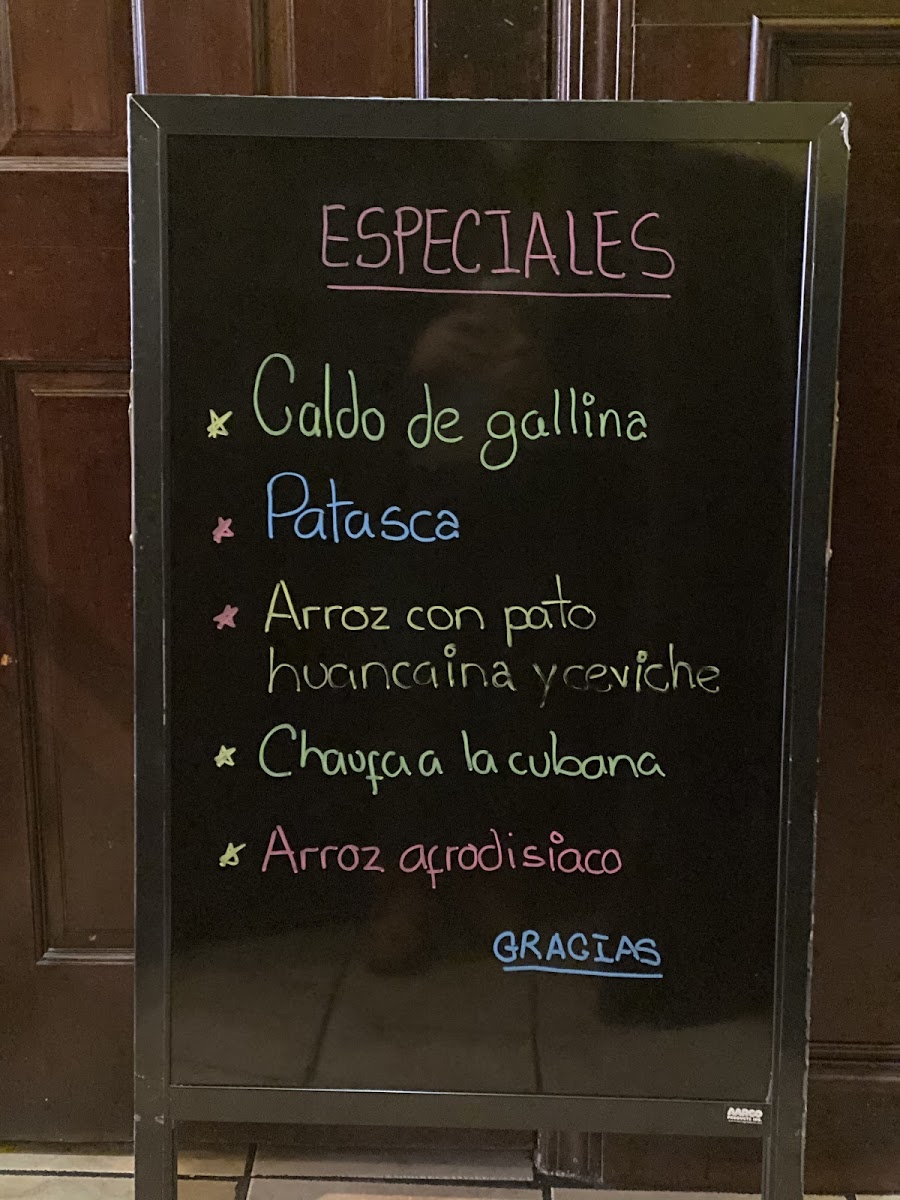 ESPECIALES
Caldo de gallina
Patasca
Arroz con pato
huancaina y ceviche
Chaufa a la cubana
Arroz afrodisiaco
GRACIAS
AARCO
PRODUCTS INC.